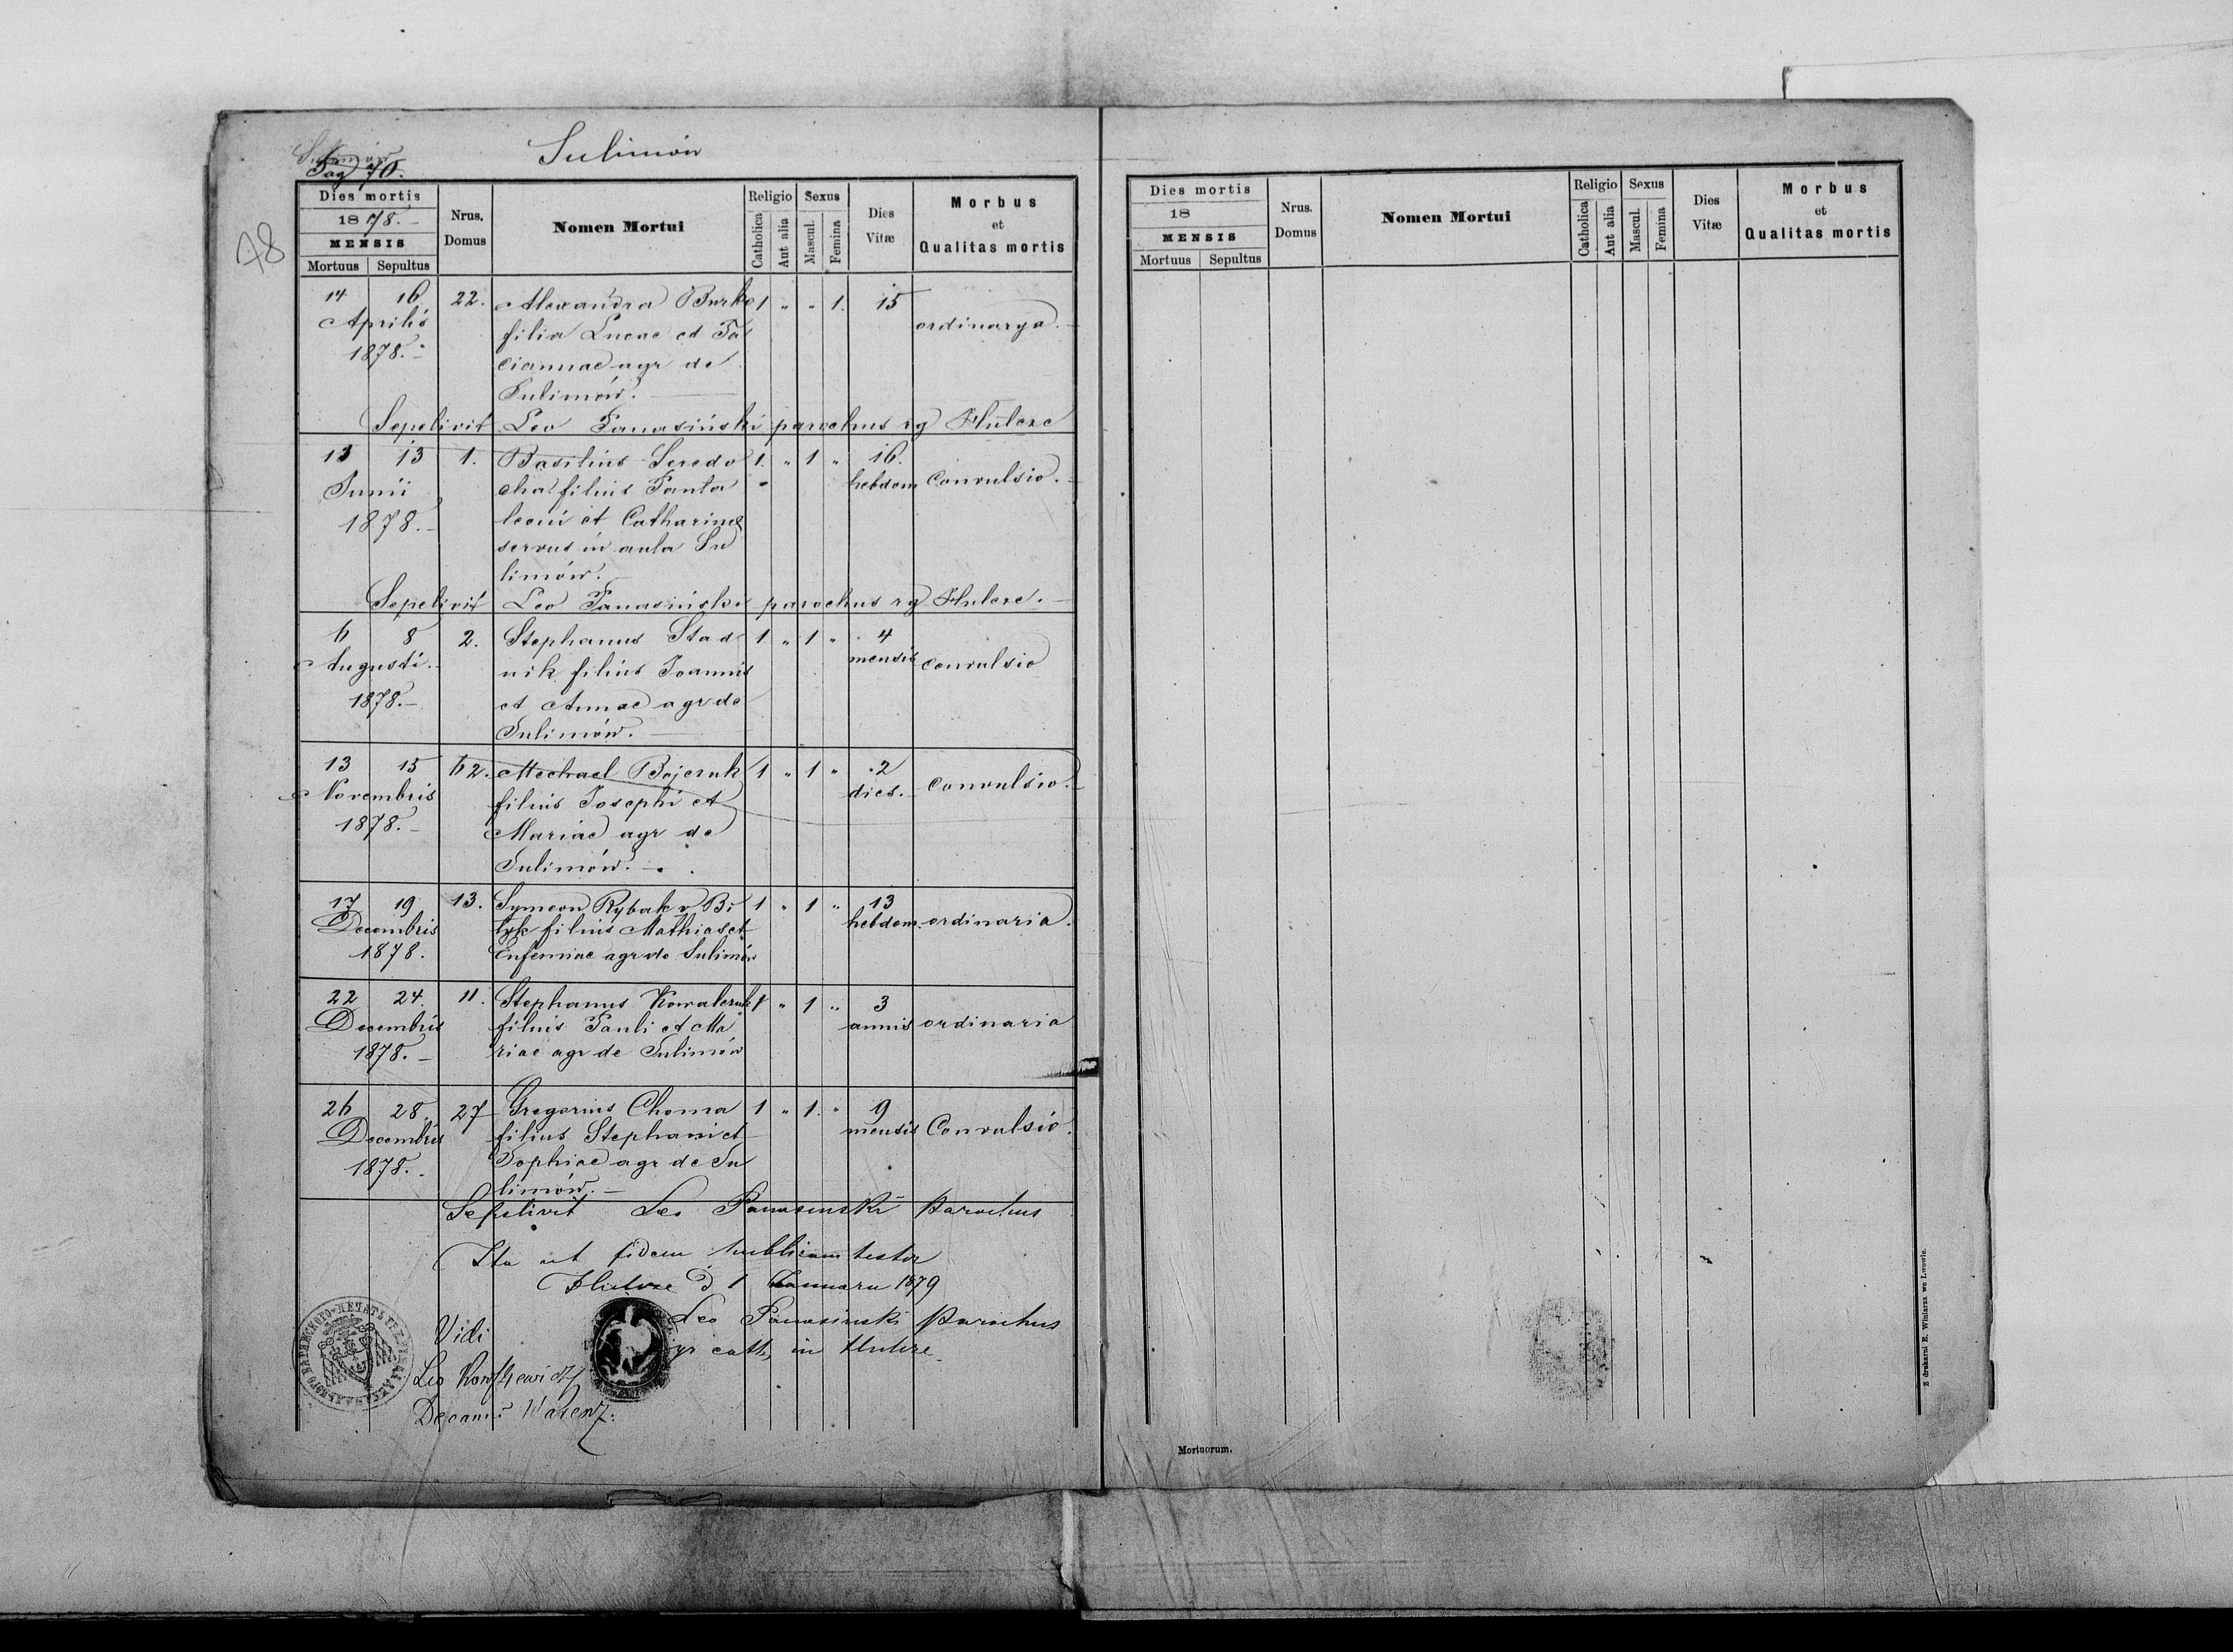 Sulimów
Pag 70.
Sulimów
78
Dies mortis
1878.
MENSIS
Mortuus Sepultus
Nrus. Domus
Nomen Mortui
Religio
Catholica
Aut alia
Sexus
Mascul.
Femina
Dies Vitæ
Morbus et Qualitas mortis
14 16 22. Alexandra Burko 1 " " 1. 15
Aprilis filia Lucae et Ta ordinarya.
1878. ciannae agr de
Sulimów.
Sepelivit Leo Panasiński parochus rg Hulcze
13 13 1. Basilius Seredo 1. " 1 " 16.
Junii cha filius Panta hebdom Convulsio.
1878. leoni et Catharinae
servus in aula Su
limów.
Sepelivit Leo Panasiński parochus rg Hulcze.
6 8 2. Stephanus Stad 1 " 1 " 4
Augusti. nik filius Joannis mensis convulsio
1878. et Annae agr de
Sulimów.
13 15 62. Mechael Bojczuk 1 " 1 " 2
Novembris filius Josephi et dies. convulsio.
1878. Mariae agr de
Sulimów.
17 19 13. Symeon Rybak v Bi 1 " 1 " 13
Decembris lyk filius Mathias et hebdom. ordinaria.
1878. Eufemiae agr de Sulimów
22 24. 11. Stephanus Kowalczuk 1 " 1 " 3
Decembris filius Pauli et Ma annis ordinaria
1878. riae agr de Sulimów
26 28. 27 Gregorius Choma 1 " 1. " 9
Decembris filius Stephani et mensis Convulsio.
1878. Sophiae agr de Su
limów.
Sepelivit Leo Panasinski Parochus
Ita ut fidem publicam testor
Hulcze d 1 Januaru 1879
Leo Panasinski Parochus
gr cath in Hulcze
Vidi
Leo
Decanus Warenz.
Dies mortis
18
MENSIS
Mortuus Sepultus
Nrus. Domus
Nomen Mortui
Religio
Catholica
Aut alia
Sexus
Mascul.
Femina
Dies Vitæ
Morbus et Qualitas mortis
Mortuorum.
Z drukarni E. Winiarza we Lwowie.